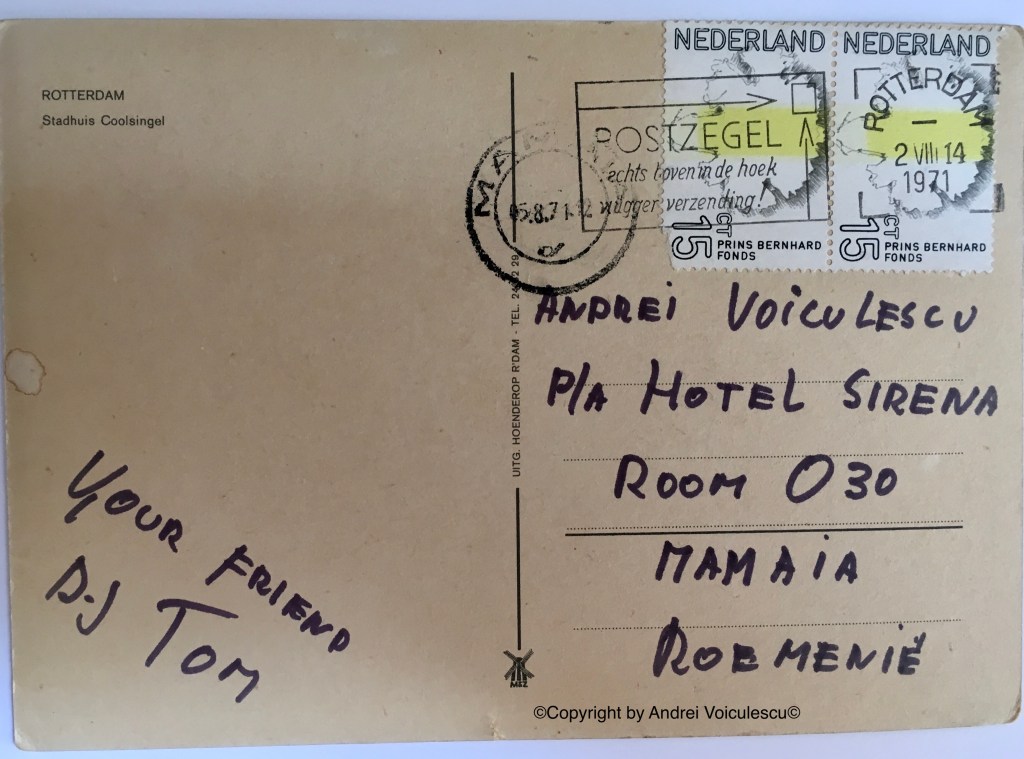 ROTTERDAM
Stadhuis Coolsingel
NEDERLAND
NEDERLAND
ROTTERDAM
2 VIII 14
1971
POSTZEGEL
echts boven in de hoek
vlugger verzending!
MAMAIA
05.8.71-12
15 CT PRINS BERNHARD
FONDS
15 CT PRINS BERNHARD
FONDS
UITG. HOENDEROP R'DAM - TEL.
ANDREI VOICULESCU
P/A HOTEL SIRENA
ROOM 030
MAMAIA
ROEMENIË
YOUR FRIEND
D-J TOM
M&Z
©Copyright by Andrei Voiculescu©